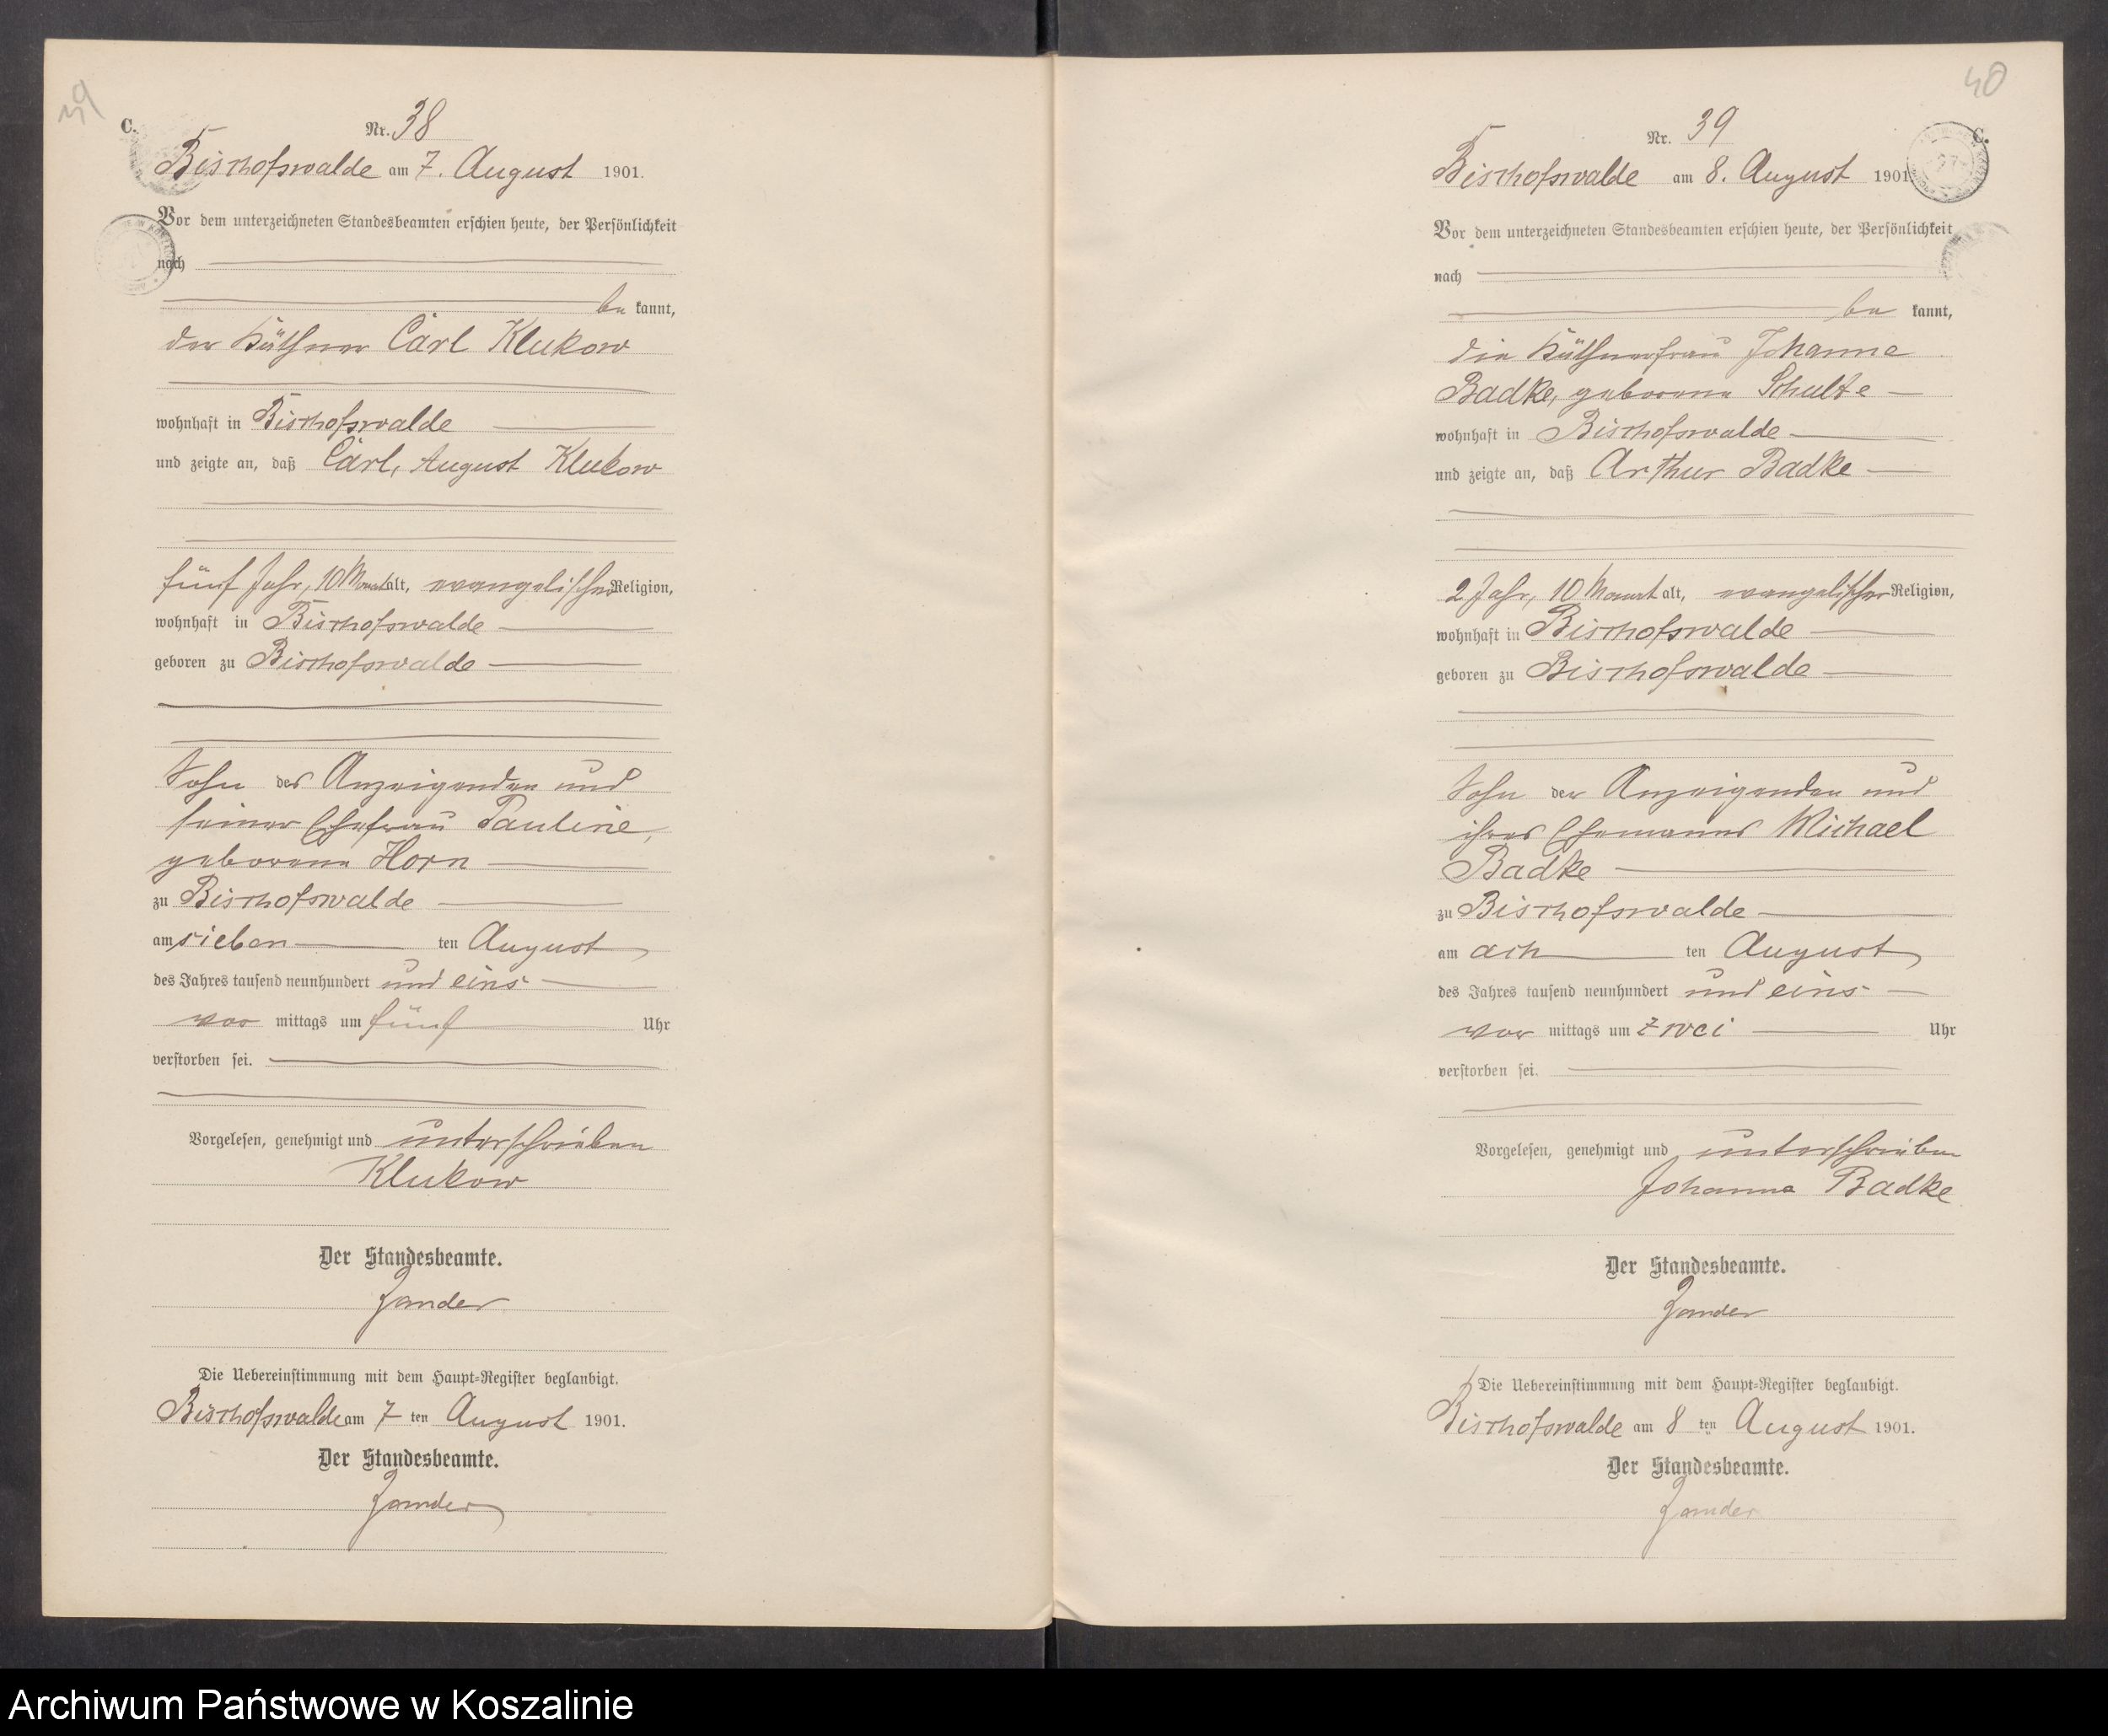 39
C.
Nr. 38
Bischofswalde am 7. August 1901.
Vor dem unterzeichneten Standesbeamten erschien heute, der Persönlichkeit
nach
be kannt,
der Käthner Carl Klukow
wohnhaft in Bischofswalde
und zeigte an, daß Carl, August Klukow
fünf Jahr, 10 Monat alt, evangelischer Religion,
wohnhaft in Bischofswalde
geboren zu Bischofswalde
Sohn des Anzeigenden und
seiner Ehefrau Pauline,
geborene Horn
zu Bischofswalde
am sieben ten August
des Jahres tausend neunhundert und eins
vor mittags um fünf Uhr
verstorben sei.
Vorgelesen, genehmigt und unterschrieben
Klukow
Der Standesbeamte.
Zander
Die Uebereinstimmung mit dem Haupt-Register beglaubigt.
Bischofswalde am 7 ten August 1901.
Der Standesbeamte.
Zander
40
C.
Nr. 39
Bischofswalde am 8. August 1901.
Vor dem unterzeichneten Standesbeamten erschien heute, der Persönlichkeit
nach
be kannt,
die Käthnerfrau Johanna
Badke, geborene Schulte
wohnhaft in Bischofswalde
und zeigte an, daß Arthur Badke
2 Jahr, 10 Monat alt, evangelischer Religion,
wohnhaft in Bischofswalde
geboren zu Bischofswalde
Sohn der Anzeigenden und
ihres Ehemannes Michael
Badke
zu Bischofswalde
am ach ten August
des Jahres tausend neunhundert und eins
vor mittags um zwei Uhr
verstorben sei.
Vorgelesen, genehmigt und unterschrieben
Johanna Badke
Der Standesbeamte.
Zander
Die Uebereinstimmung mit dem Haupt-Register beglaubigt.
Bischofswalde am 8 ten August 1901.
Der Standesbeamte.
Zander
Archiwum Państwowe w Koszalinie